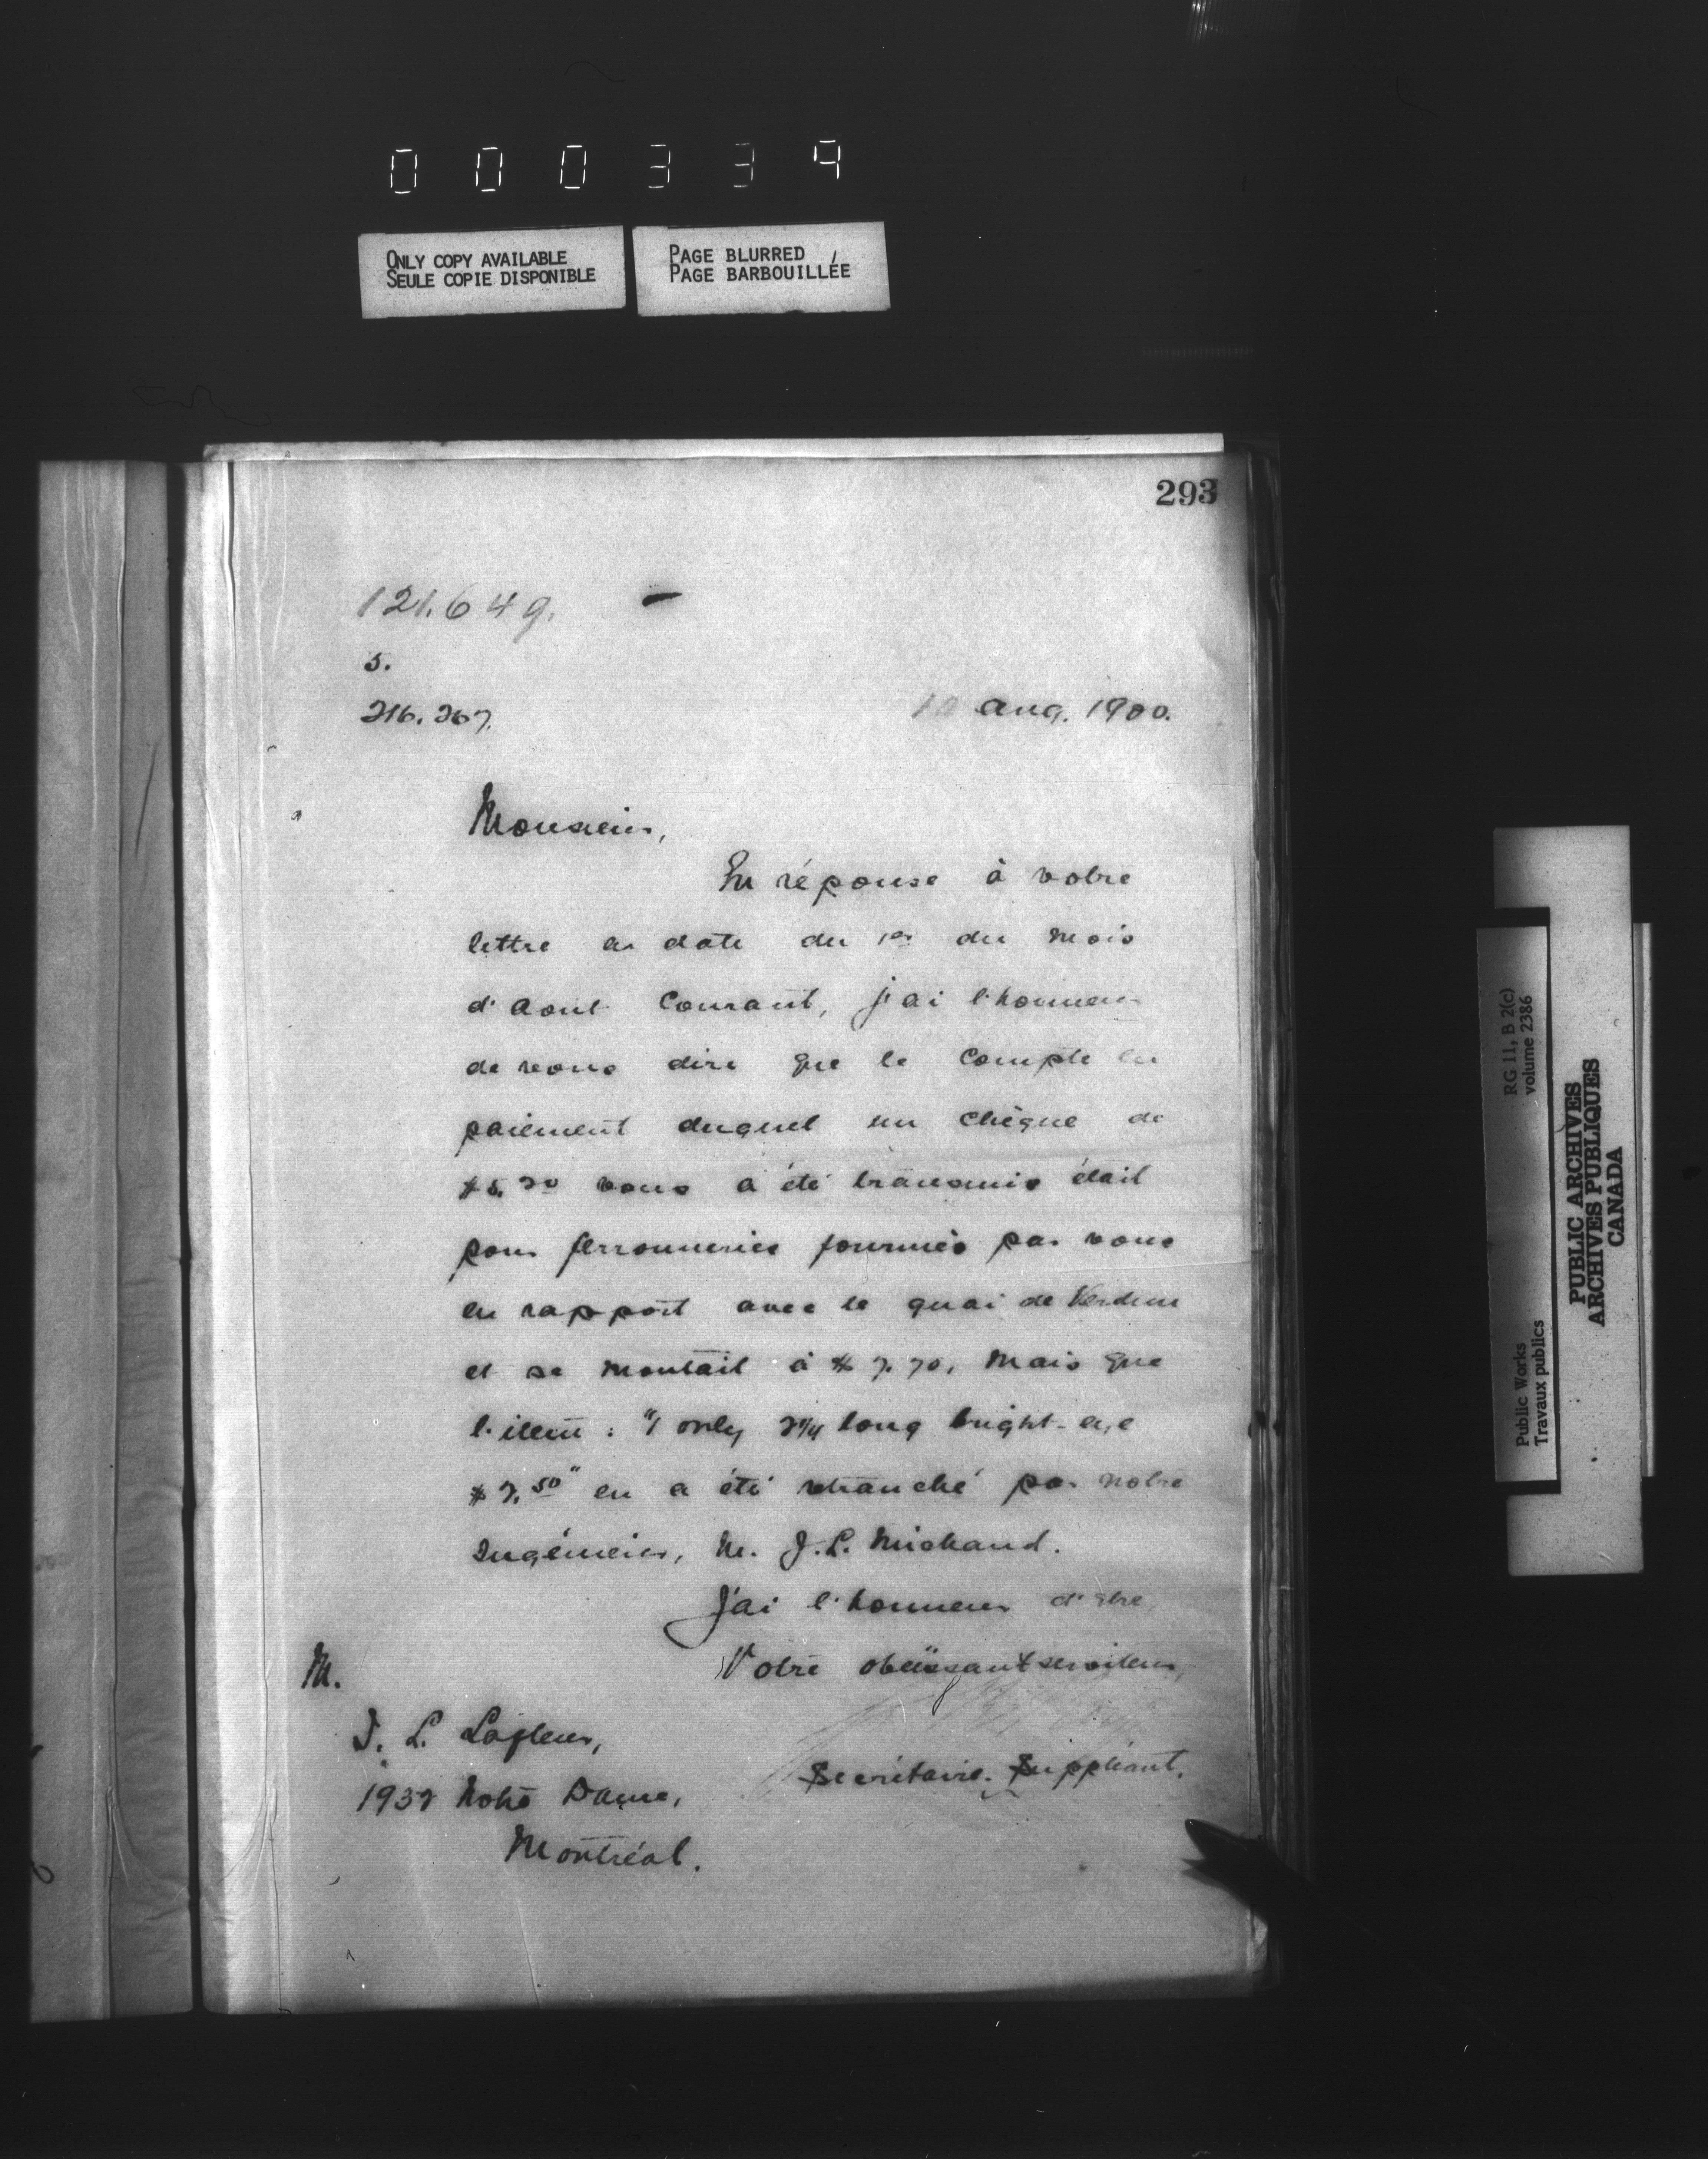 000334
ONLY COPY AVAILABLE
SEULE COPIE DISPONIBLE
PAGE BLURRED
PAGE BARBOUILLÉE
293
121.649.
5.
216.267.
10 Aug. 1900.
Monsieur,
En réponse à votre
lettre en date du 1er du mois
d'Aout Courant, j'ai l'honneur
de vous dire que le compte en
paiement duquel un chèque de
vous a été transmis était
pour ferronneries fournies par vous
en rapport avec le quai de Verdun
et se montait à $7.70, mais que
l'item : "1 only 2¼ long
en a été retranché par notre
Ingénieur, M. J. L. Michaud.
J'ai l'honneur d'être
Votre obéissant serviteur,
Secrétaire Suppléant.
M.
J. L. Lafleur,
1932 Notre Dame,
Montréal.
RG 11, B 2(c)
volume 2386
Public Works
Travaux publics
PUBLIC ARCHIVES
ARCHIVES PUBLIQUES
CANADA